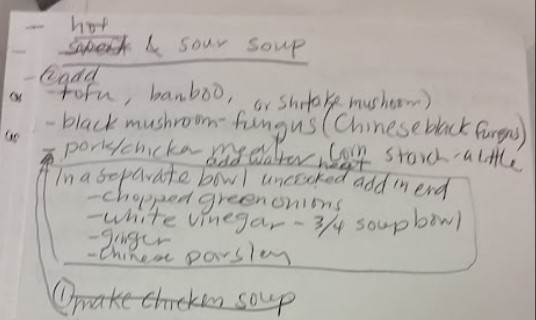 - hot
- sweet & sour soup
- ② add
- tofu, bamboo, or shitake mushroom)
- black mushroom - fungus (Chinese black fungus)
- pork/chicken meat corn starch - a little
add water heat
In a separate bowl uncooked add in end
- chopped green onions
- white vinegar - 3/4 soup bowl
- ginger
- Chinese parsley
① make chicken soup